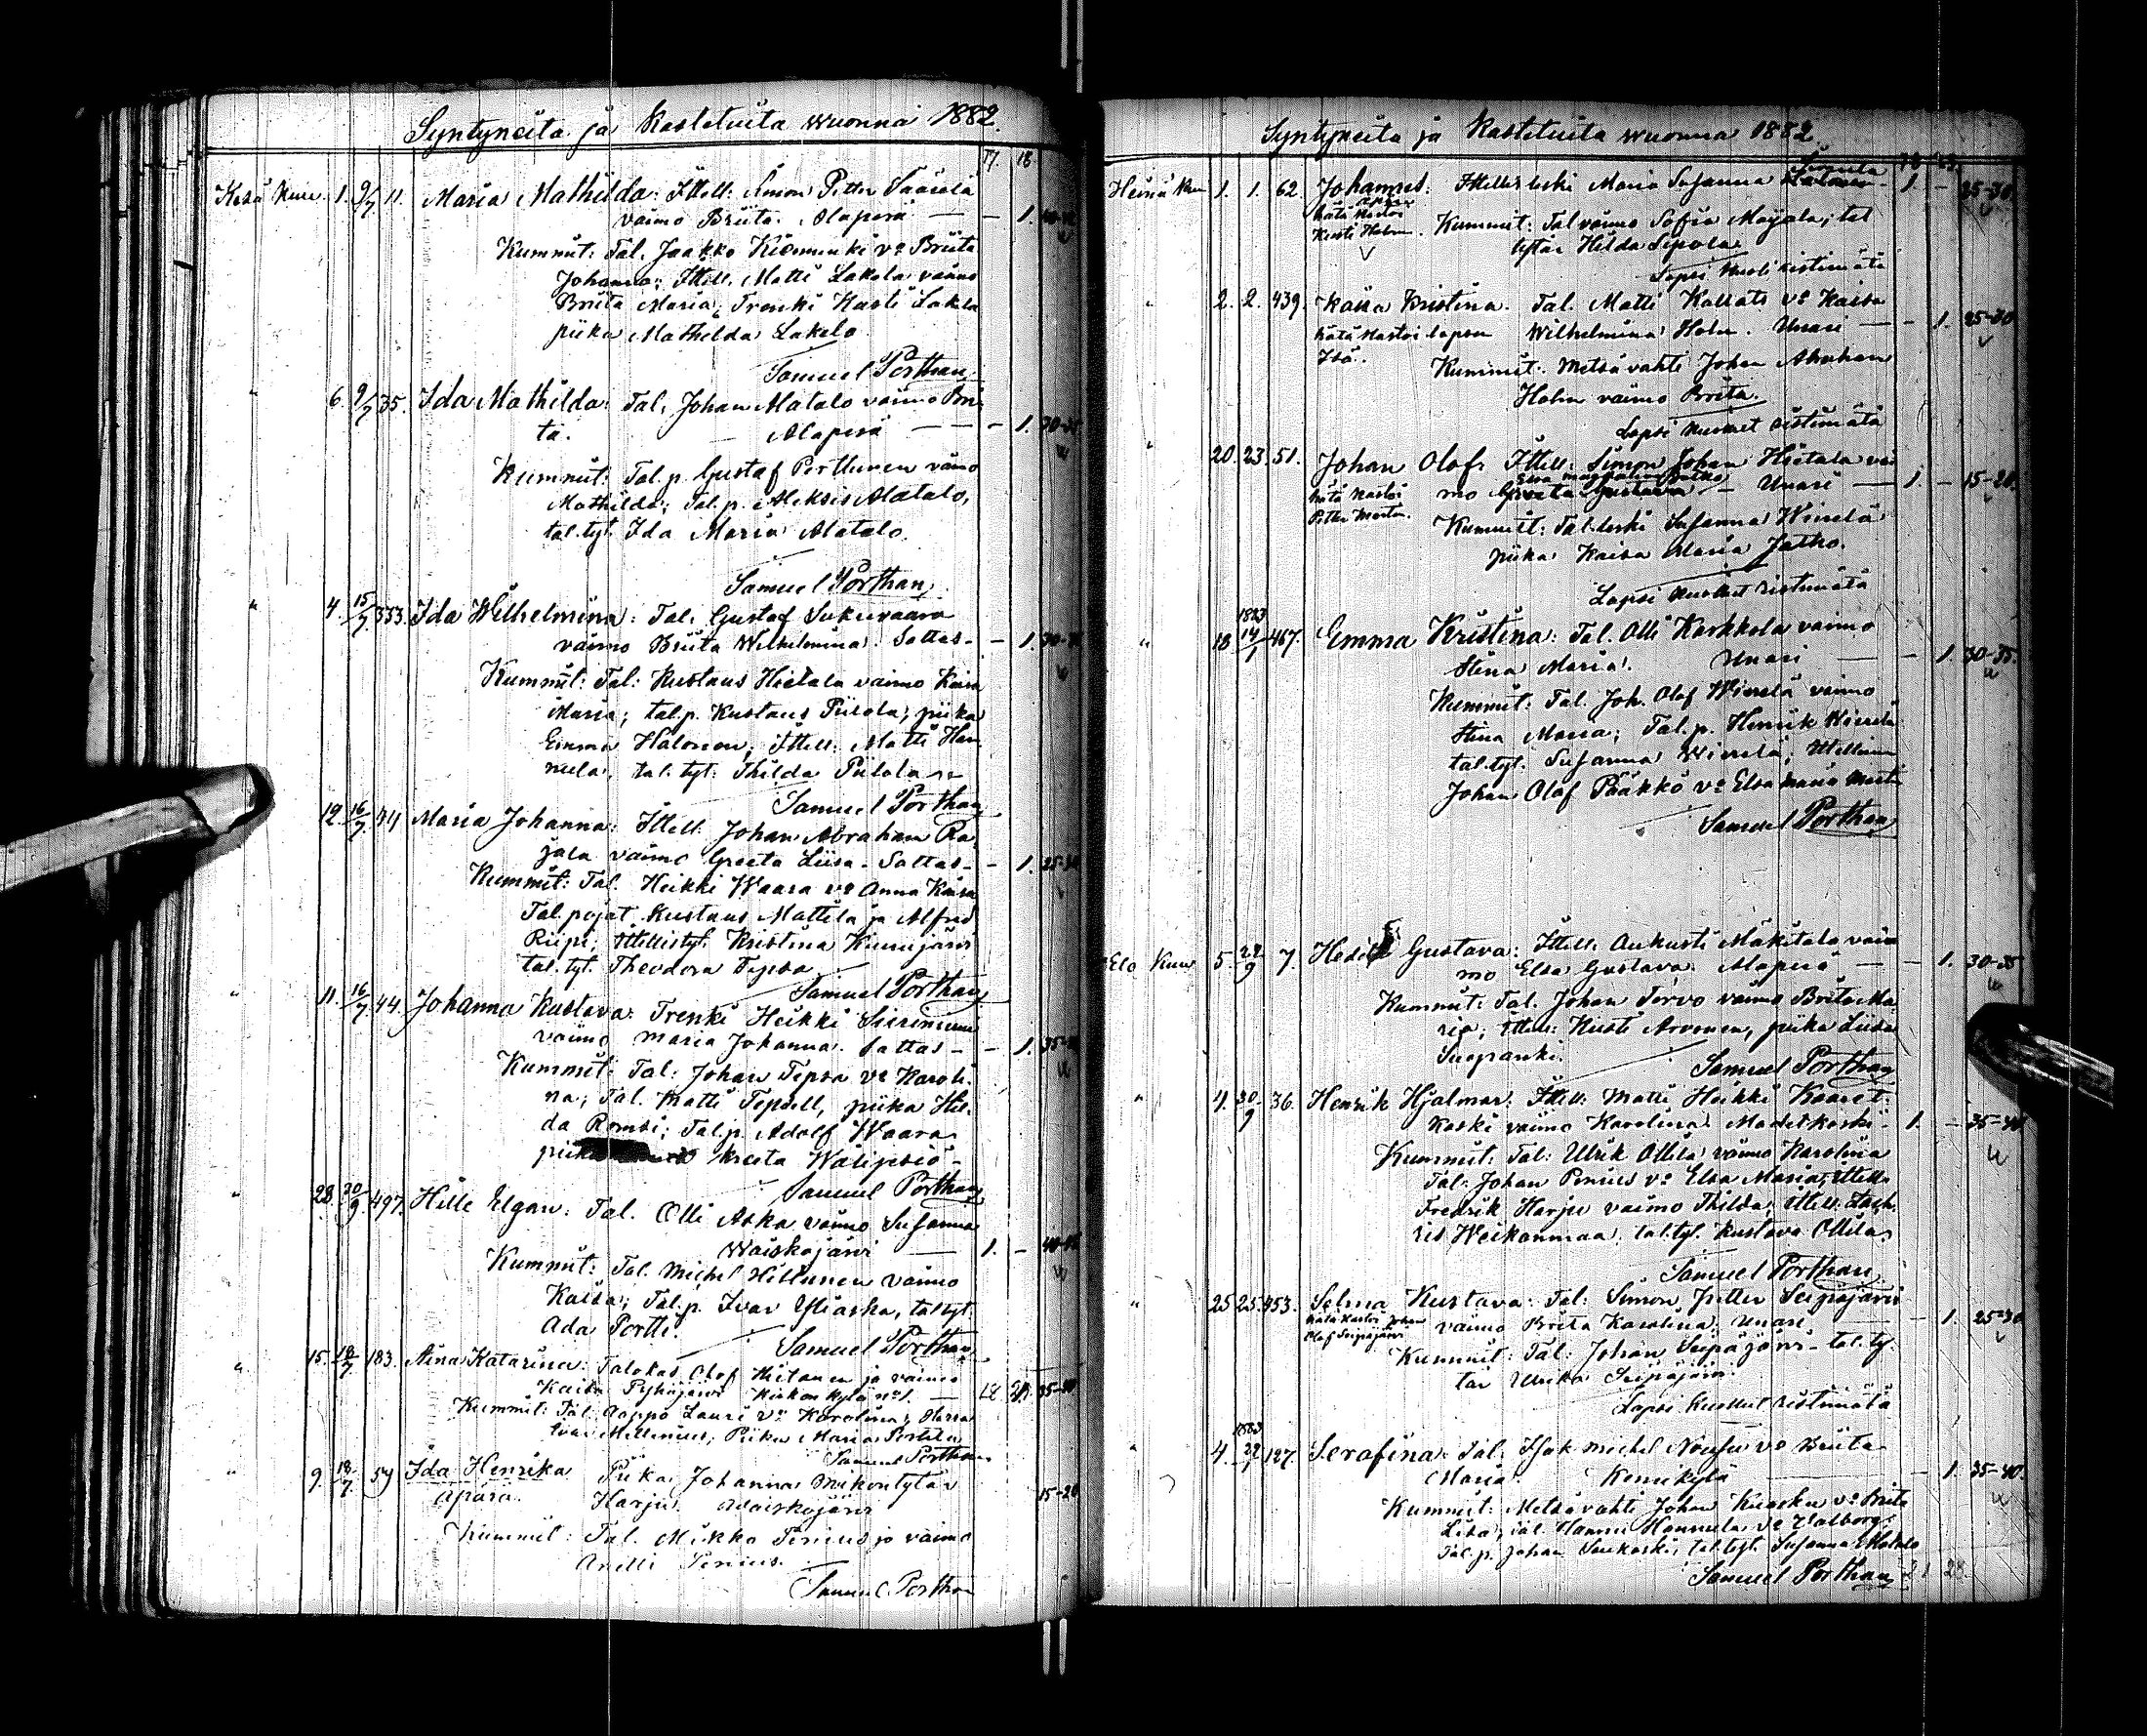 Syntyneitä ja Kastetuita wuonna 1882.
17. 18
Kesä Kuu. 1. 9/7 11. Maria Mathilda: Ittell. Simon Petter
vaimo Briita. Alaperä — — 1.
Kummit: Tal. Jaakko Kiemunki vo Briita
Johanna; Ittell. Matti Lakela vaimo
Briita Maria; Trenki Kusti Lakela
piika Mathilda Lakela.
Samuel Porthan
" 6. 9/7 35. Ida Mathilda: Tal. Johan Alatalo vaimo Bri-
ta. — Alaperä — — 1. 30-35
Kummit: Tal. p. Gustaf Porthunen vaimo
Mathilda; Tal. p. Aleksis Alatalo,
tal. tyt. Ida Maria Alatalo.
Samuel Porthan
" 4. 15/7 353. Ida Wilhelmina: Tal. Gustaf Sukuvaara
vaimo Briita Wilhelmina. Sattas - — 1.
Kummit: Tal: Kustaus Hietala vaimo Kaisa
Maria; tal. p. Kustaus Piilola; piika
Emma Halonen; Ittell. Matti Han-
nula, tal. tyt. Thilda Piilola
Samuel Porthan
12. 16/7 Maria Johanna: Ittell. Johan Abraham Ra-
jala vaimo Greeta Liisa - Sattas - — 1. 25-30
Kummit: Tal. Heikki Waara vo Anna Kaisa
Tal. pojat Kustaus Mattila ja Alfred
Riipi; Ittellistyt. Kristina Kiurujärvi
tal. tyt. Theodora Tepsa
Samuel Porthan
" 11. 16/7 44. Johanna Kustava: Trenki Heikki
vaimo Maria Johanna. Sattas - — 1.
Kummit: Tal: Johan Tepsa vo Karoli-
na; Tal. Matti Tepsell, piika Hil-
da Romsi; Tal. p. Adolf Waara
piika Kreeta Walipesio -
Samuel Porthan
" 28. 30/9 497. Hille Elgan: Tal. Olli Aska vaimo Susanna
Waiskojärvi — 1. — 40-45
Kummit: Tal. Michel Hiltunen vaimo
Kaisa; Tal. p. Ivar Yliaska, tal. tyt.
Ada Portti.
Samuel Porthan
" 15. 18/7 183. Aina Katarina: Talokas Olof Hietanen ja vaimo
Kaisa Pyhäjärvi Kirkonkylä no 1. —
Kummit: Tal. Aappo Lauri vo Karolina; Herra
Ivar Mellenius, Piika Maria Perttula
Samuel Porthan
" 9. 18/7 59 Ida Henrika Piika Johanna Mikontytär
äpärä. Harju. Waiskojärvi 15-20
Kummit: Tal. Mikko Penius ja vaimo
Anelli Penius.
Samuel Porthan
Syntyneitä ja Kastetuita wuonna 1882
Heinä Kuu 1. 1. 62. Johannes: Ittellis leski Maria Susanna 1. — 25-30
äpärä
hätä kastoi
Kusti Holm. Kummit: Tal vaimo Sofia Majala; tal
tytär Hilda Sipola
Lapsi kuoli ristimätä
" 2. 2. 439. Kaisa Kristina. Tal. Matti Kallats vo Kaisa
hätä kastoi lapsen Wilhelmina Holm. Unari — — 1. 25-30
Isä.
Kummit: Metsä vahti Johan Abraham
Holm vaimo Briita.
Lapsi kuollut ristimätä
" 20. 23. 51. Johan Olof: Ittell. Simon Johan Hietala vai-
mo Greeta Gustava — Unari — 1. — 15-20.
hätä kastoi
Petter Martin. Kummit: Tal. leski Susanna Wierelä
piika Kaisa Maria Jatko.
Lapsi kuollut ristimätä
" 18 1883 14/1 467. Emma Kristina: Tal. Olli Karkkola vaimo
Stina Maria. Unari — — 1. 30-35.
Kummit: Tal. Joh. Olof Wierelä vaimo
Stina Maria; Tal. p. Henrik Wierelä
tal. tyt. Susanna Wierelä; Ittellinen
Johan Olof Pääkkö vo Elsa Maria
Samuel Porthan
Elo Kuu 5. 24/9 7. Hedi Gustava: Ittell. Aukusti Mäkitalo vai-
mo Elsa Gustava. Alaperä — — 1. 30-35
Kummit: Tal. Johan Torvo vaimo Brita Ma-
ria; Ittell: Kusti Arvonen, piika Liisa
Siepanki.
Samuel Porthan
" 4. 30/9 36. Henrik Hjalmar: Ittell: Matti Heikki Kaaret-
koski vaimo Karolina Madetkoski - 1. — 35-40
Kummit: Tal: Ulrik Ollila vaimo Karolina
Tal: Johan Penius vo Elsa Maria; Ittell.
Fredrik Harju vaimo Thilda; Ittell:
Weikanmaa; tal. tyt. Kustava Ollila
Samuel Porthan
" 25 25 453. Selma Kustava: Tal: Simon Petter Seipäjärvi
hätä kastoi Johan
Olof Seipäjärvi vaimo Brita Karolina; Unari — 1. 25-30
Kummit: Tal: Johan Seipäjärvi - tal. ty-
tär Ulrika Seipäjärvi.
Lapsi kuollut ristimätä
" 4. 1883 27/1 127. Serafina: Tal: Isak Michel Nousu vo Briita
Maria. Kemikylä — 1. 35-40.
Kummit: Metsävahti Johan Kuosku vo Brita
Lisa; Tal. Hannu Hannula vo Valborg;
Tal. p. Johan Saukoski; tal. tyt. Susanna Alatalo
Samuel Porthan 21 28